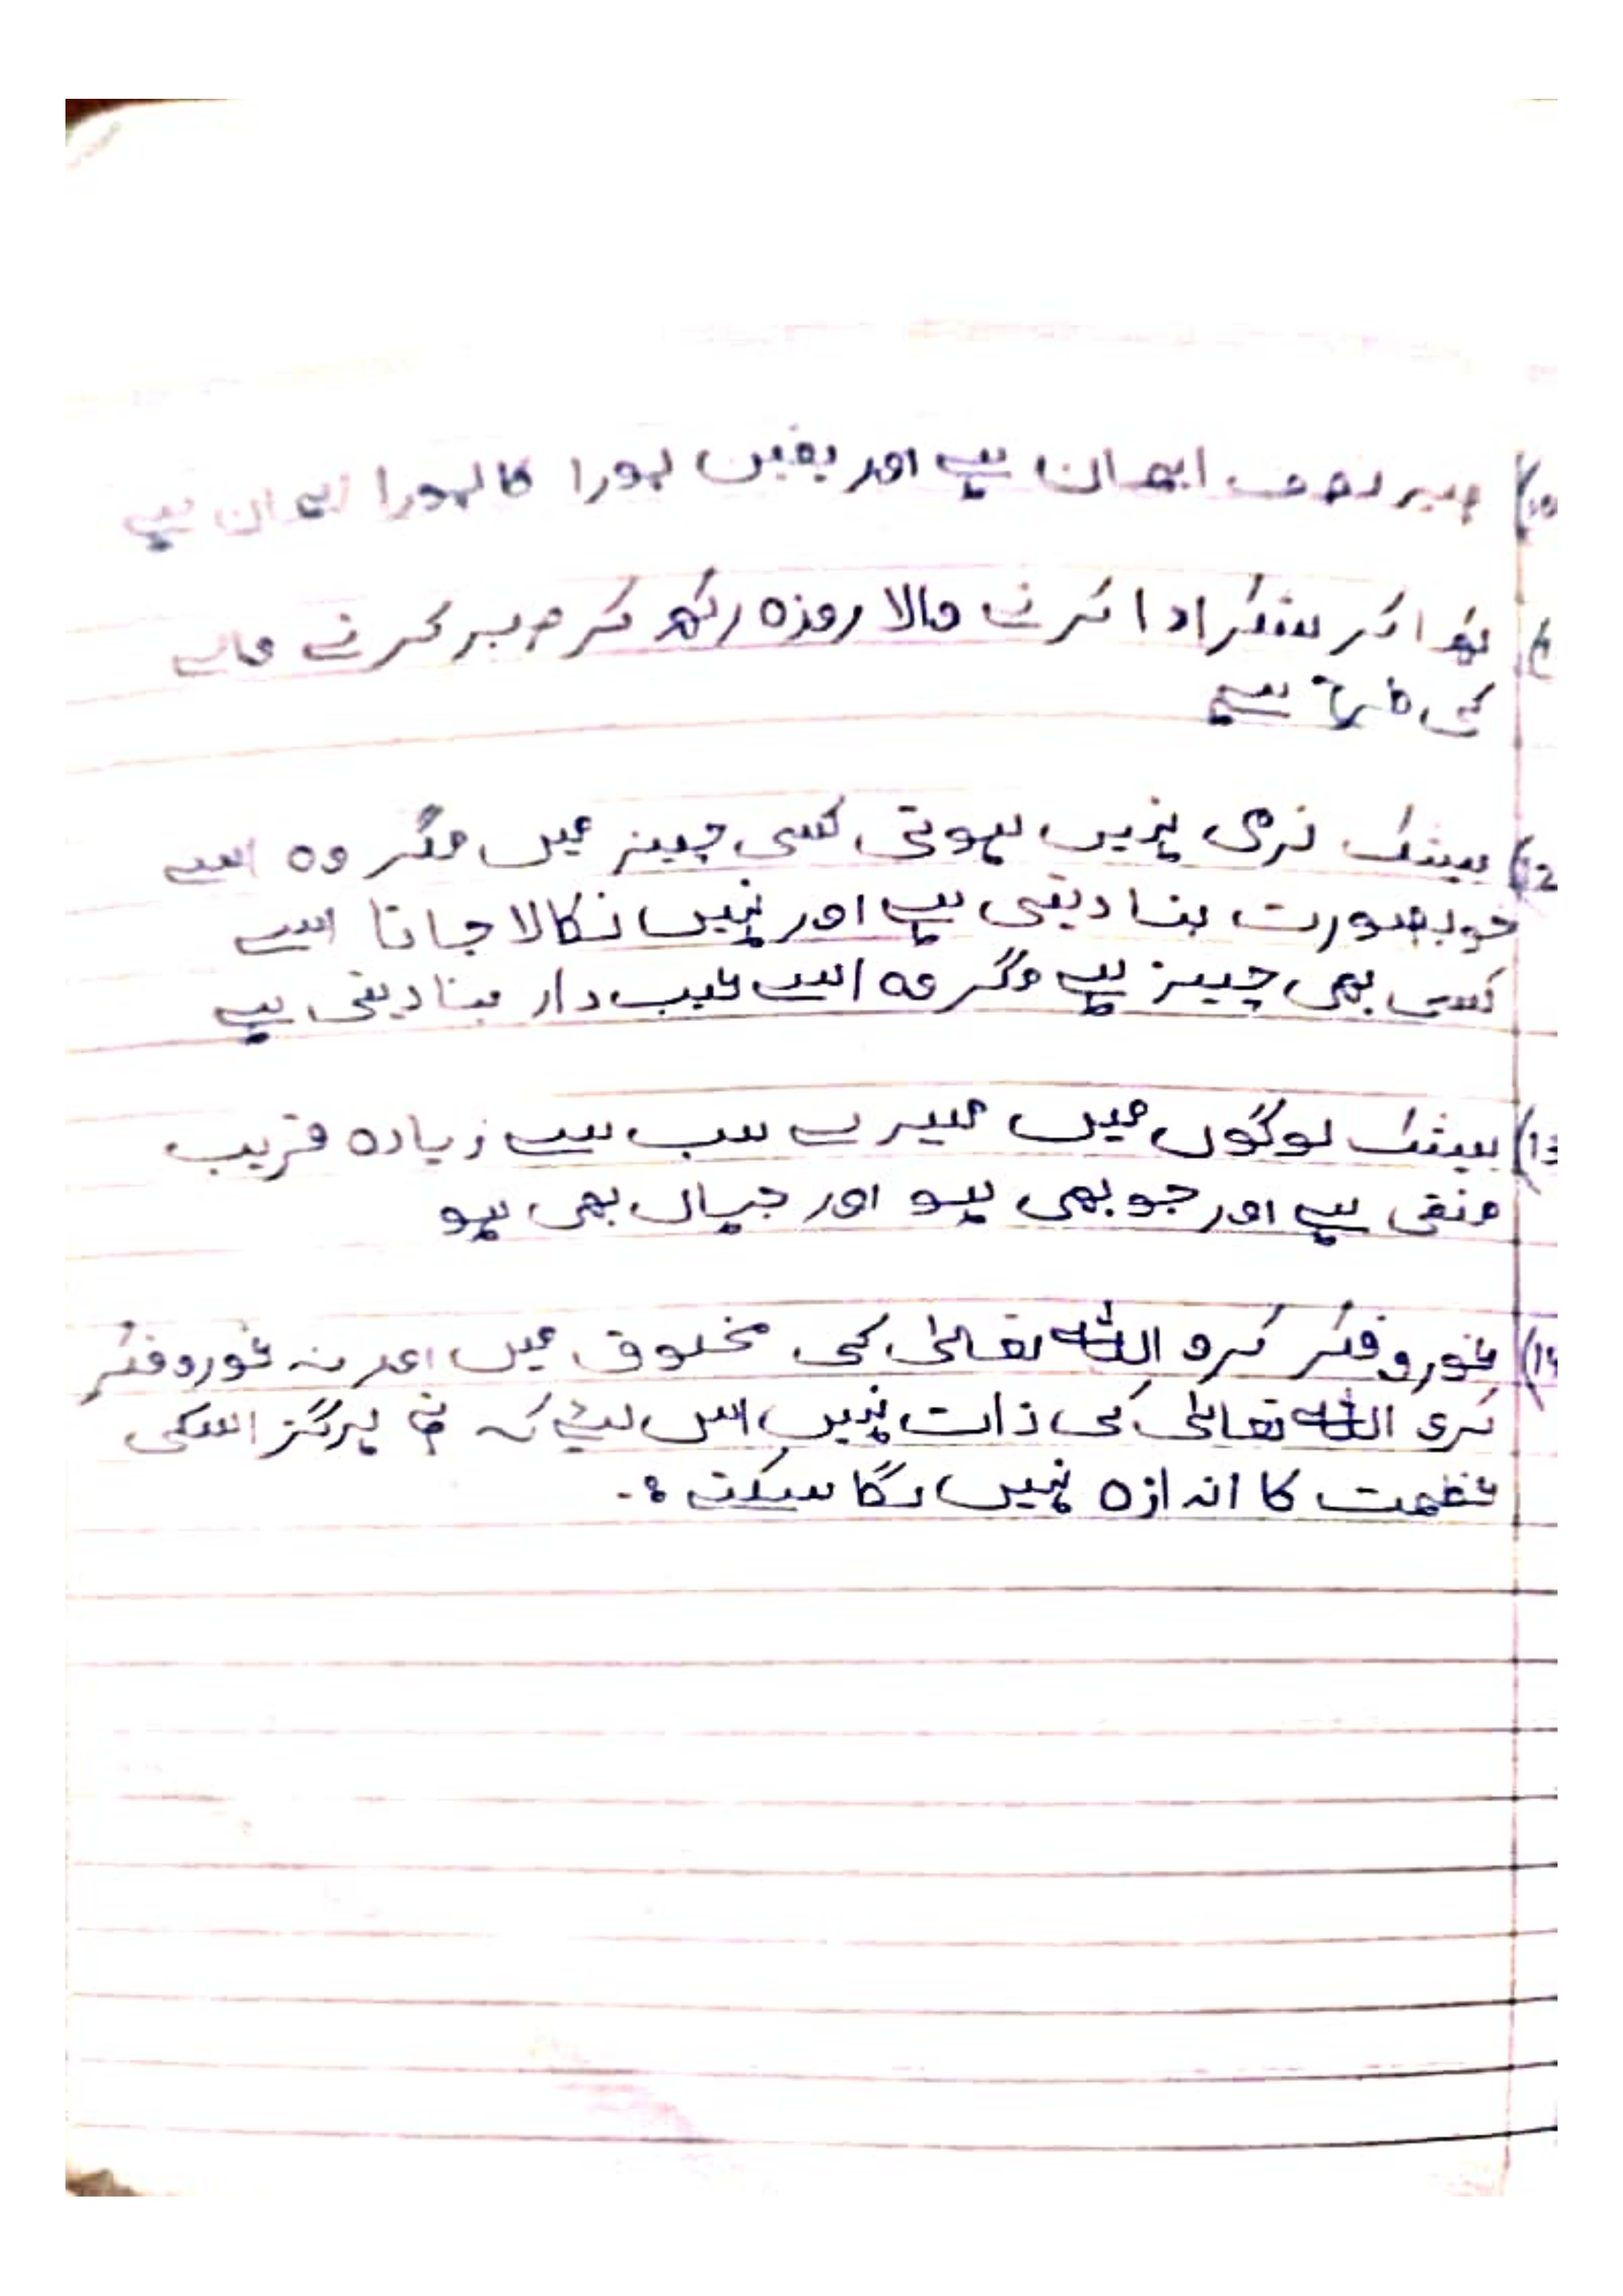 10) صبر نصف ایمان ہے اور یقین پورا کا پورا ایمان ہے
کھا کر شکر ادا کرنے والا روزہ رکھ کر صبر کرنے والے
کی طرح ہے
12) بیشک نرمی نہیں ہوتی کسی چیز میں مگر وہ اسے
خوبصورت بنا دیتی ہے اور نہیں نکالا جاتا اسے
کسی بھی چیز سے مگر وہ اسے عیب دار بنا دیتی ہے
13) بیشک لوگوں میں میرے سب سے زیادہ قریب
متقی ہے اور جو بھی ہو اور جہاں بھی ہو
14) غوروفکر کرو اللہ تعالیٰ کی مخلوق میں اور نہ غوروفکر
کرو اللہ تعالیٰ کی ذات نہیں اس لیئے کہ تم ہرگز اسکی
عظمت کا اندازہ نہیں لگا سکتے